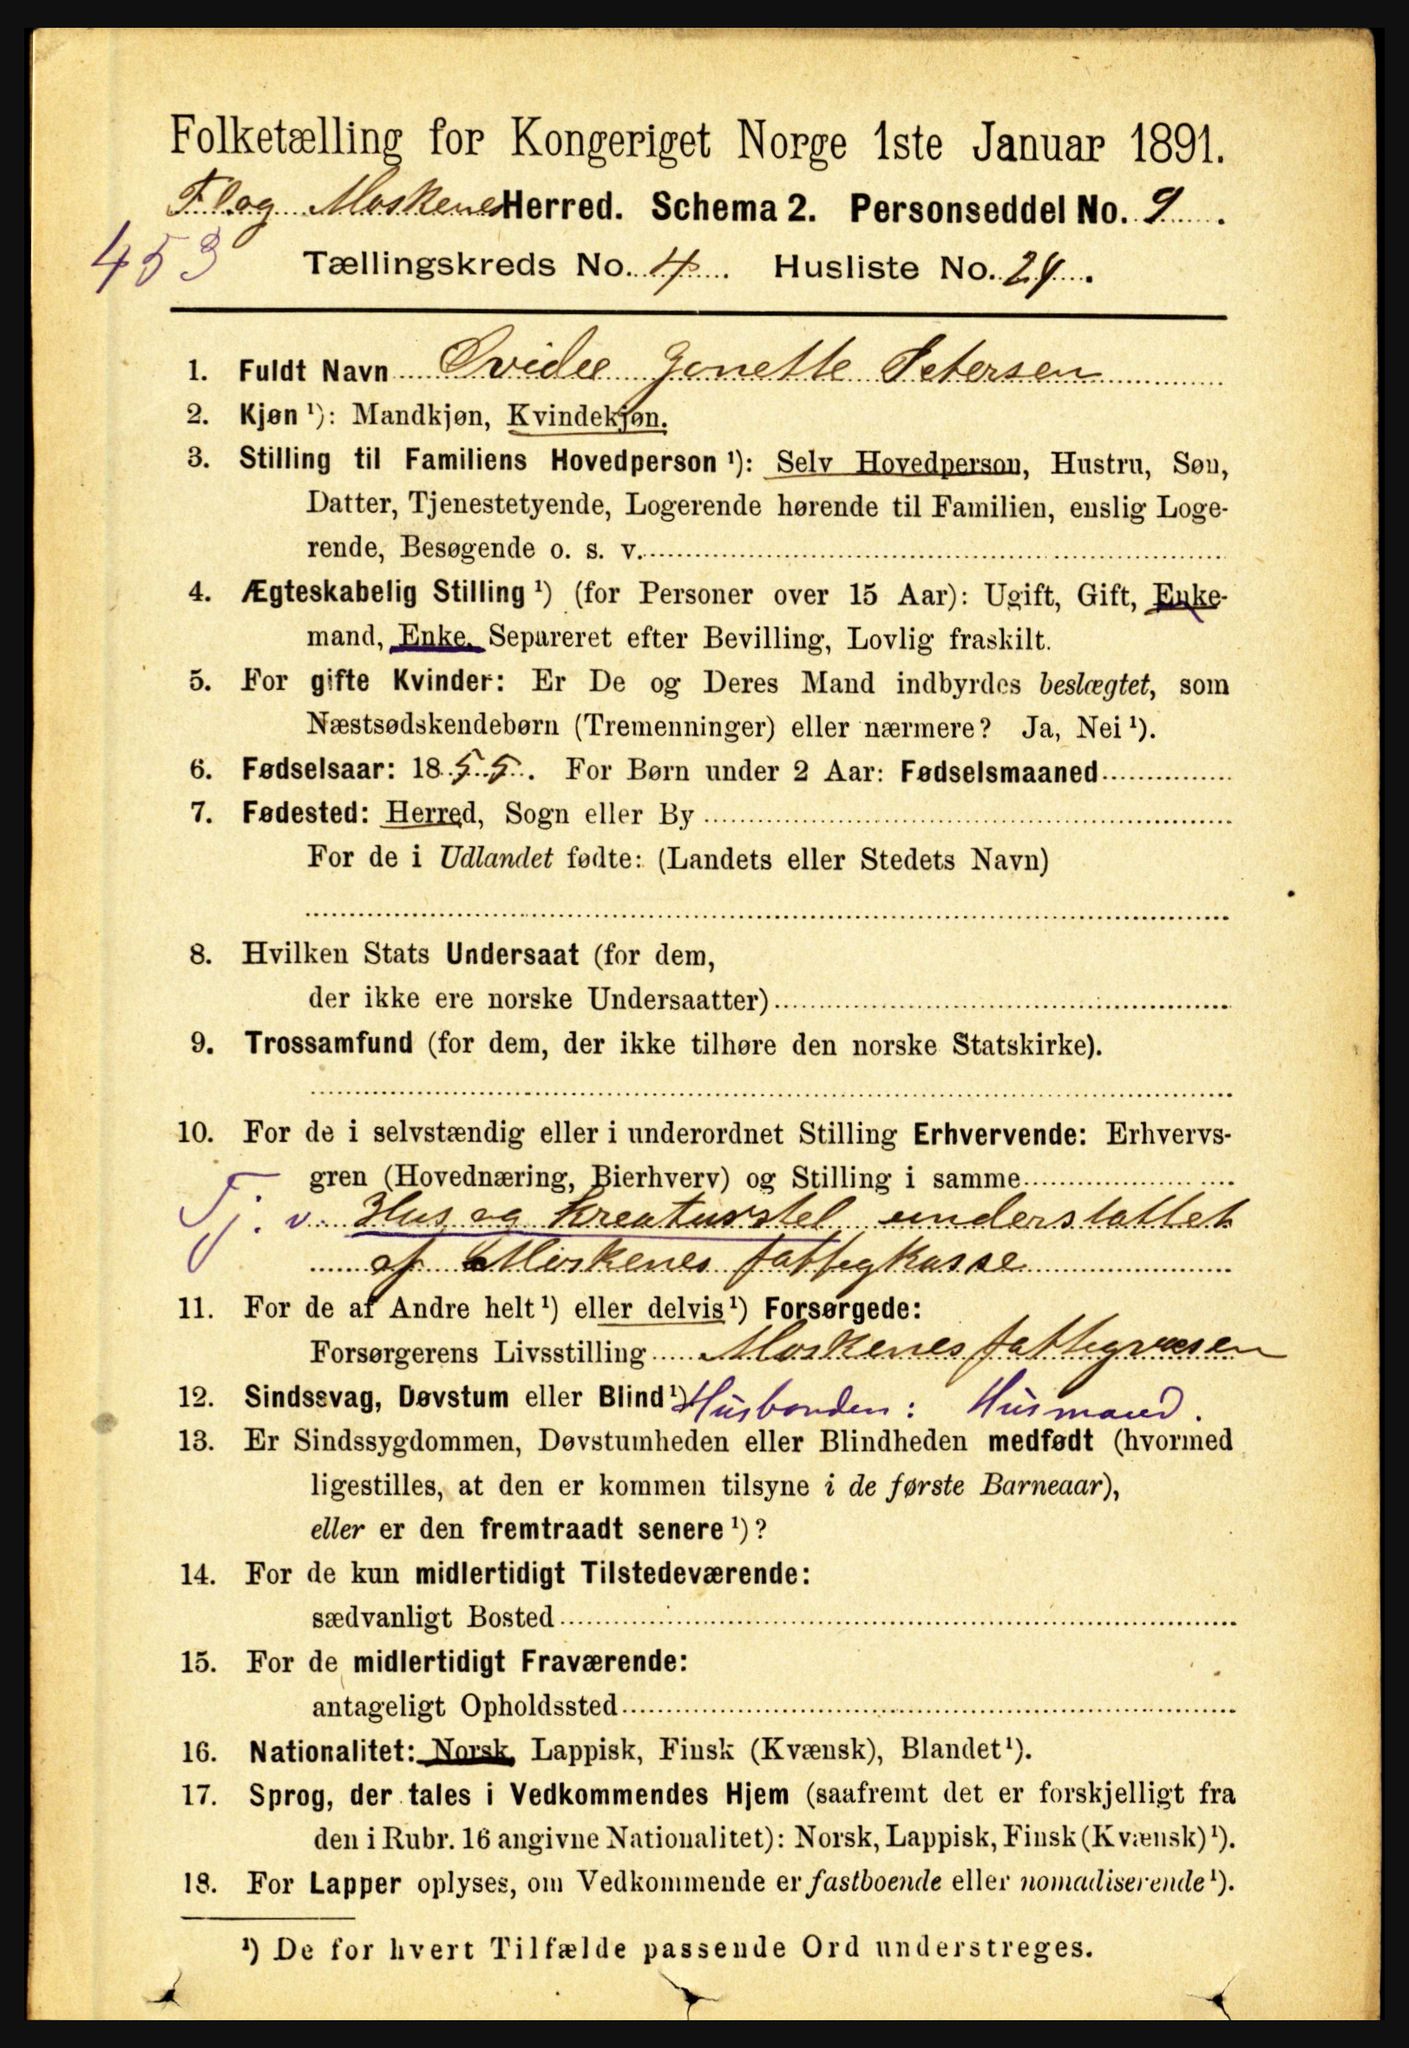 Folketælling for Kongeriget Norge 1ste Januar 1891.
Fl og Moskenes Herred. Schema 2. Personseddel No. 9.
453
Tællingskreds No. 4. Husliste No. 24.
1. Fuldt Navn Ovidee Jonette Petersen
2. Kjøn ¹): Mandkjøn, Kvindekjøn.
3. Stilling til Familiens Hovedperson ¹): Selv Hovedperson, Hustru, Søn,
Datter, Tjenestetyende, Logerende hørende til Familien, enslig Loge-
rende, Besøgende o. s. v.
4. Ægteskabelig Stilling ¹) (for Personer over 15 Aar): Ugift, Gift, Enke-
mand, Enke, Separeret efter Bevilling, Lovlig fraskilt.
5. For gifte Kvinder: Er De og Deres Mand indbyrdes beslægtet, som
Næstsødskendebørn (Tremenninger) eller nærmere? Ja, Nei ¹).
6. Fødselsaar: 1855. For Børn under 2 Aar: Fødselsmaaned
7. Fødested: Herred, Sogn eller By
For de i Udlandet fødte: (Landets eller Stedets Navn)
8. Hvilken Stats Undersaat (for dem,
der ikke ere norske Undersaatter)
9. Trossamfund (for dem, der ikke tilhøre den norske Statskirke).
10. For de i selvstændig eller i underordnet Stilling Erhvervende: Erhvervs-
gren (Hovednæring, Bierhverv) og Stilling i samme
Tj. v. Hus og Kreaturstel understøttet
af Moskenes fattigkasse
11. For de af Andre helt ¹) eller delvis ¹) Forsørgede:
Forsørgerens Livsstilling Moskenes fattigvæsen
12. Sindssvag, Døvstum eller Blind ¹) Husbonden: Husmand.
13. Er Sindssygdommen, Døvstumheden eller Blindheden medfødt (hvormed
ligestilles, at den er kommen tilsyne i de første Barneaar),
eller er den fremtraadt senere ¹)?
14. For de kun midlertidigt Tilstedeværende:
sædvanligt Bosted
15. For de midlertidigt Fraværende:
antageligt Opholdssted
16. Nationalitet: Norsk, Lappisk, Finsk (Kvænsk), Blandet ¹).
17. Sprog, der tales i Vedkommendes Hjem (saafremt det er forskjelligt fra
den i Rubr. 16 angivne Nationalitet): Norsk, Lappisk, Finsk (Kvænsk) ¹).
18. For Lapper oplyses, om Vedkommende er fastboende eller nomadiserende ¹).
¹) De for hvert Tilfælde passende Ord understreges.